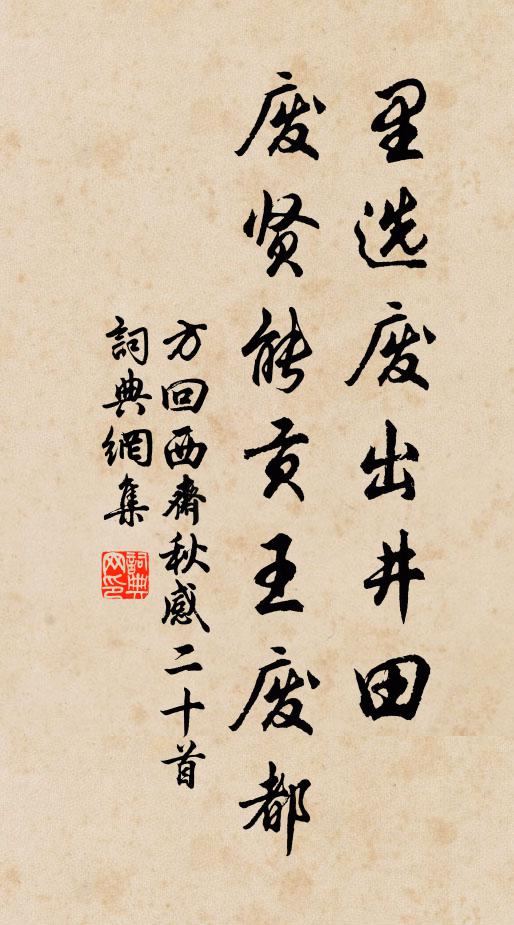 里选废出井田
废贤能贡王废都
方回西齋秋感二十首
詞典網集
詞典网印